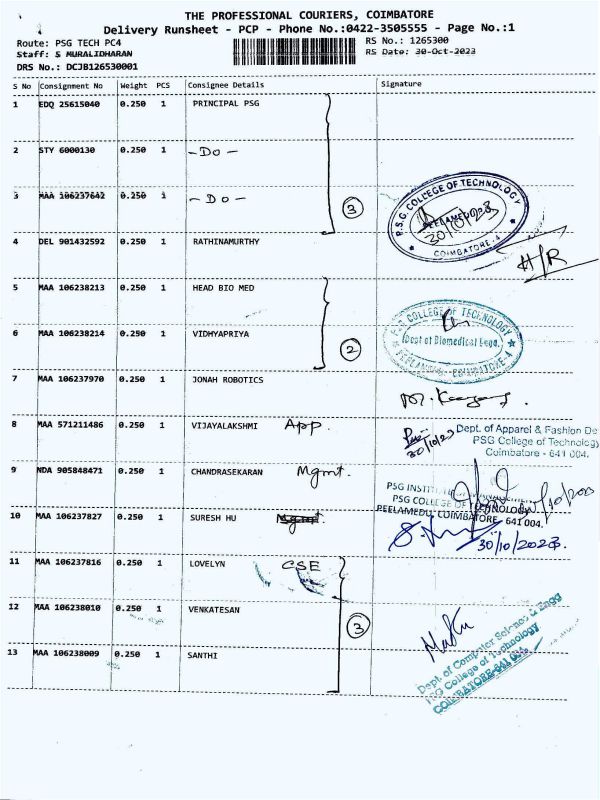 THE PROFESSIONAL COURIERS, COIMBATORE
Delivery Runsheet - PCP - Phone No.:0422-3505555 - Page No.:1
Route: PSG TECH PC4
RS No.: 1265300
Staff: S MURALIDHARAN
RS Date: 30-Oct-2023
DRS No.: DCJB126530001
S No Consignment No Weight PCS Consignee Details Signature
1 EDQ 25615040 0.250 1 PRINCIPAL PSG
2 STY 6000130 0.250 1 - Do -
3 MAA 106237642 0.250 1 - Do -
3
P.S.G. COLLEGE OF TECHNOLOGY
PEELAMEDU
30/10/23
COIMBATORE-4
4 DEL 901432592 0.250 1 RATHINAMURTHY
H/R
5 MAA 106238213 0.250 1 HEAD BIO MED
6 MAA 106238214 0.250 1 VIDHYAPRIYA
2
P.S.G COLLEGE OF TECHNOLOGY
Dept of Biomedical Engg.
PEELAMEDU, COIMBATORE-4
7 MAA 106237970 0.250 1 JONAH ROBOTICS
8 MAA 571211486 0.250 1 VIJAYALAKSHMI App.
30/10/23
Dept. of Apparel & Fashion De
PSG College of Technology
Coimbatore - 641 004.
9 NDA 905848471 0.250 1 CHANDRASEKARAN Mgmt.
PSG COLLEGE OF TECHNOLOGY
PEELAMEDU, COIMBATORE - 641 004.
10 MAA 106237827 0.250 1 SURESH HU Mgmt.
30/10/2023.
11 MAA 106237816 0.250 1 LOVELYN CSE
12 MAA 106238010 0.250 1 VENKATESAN
3
13 MAA 106238009 0.250 1 SANTHI
Dept. of Computer Science & Engg
PSG College of Technology
COIMBATORE-641 004.